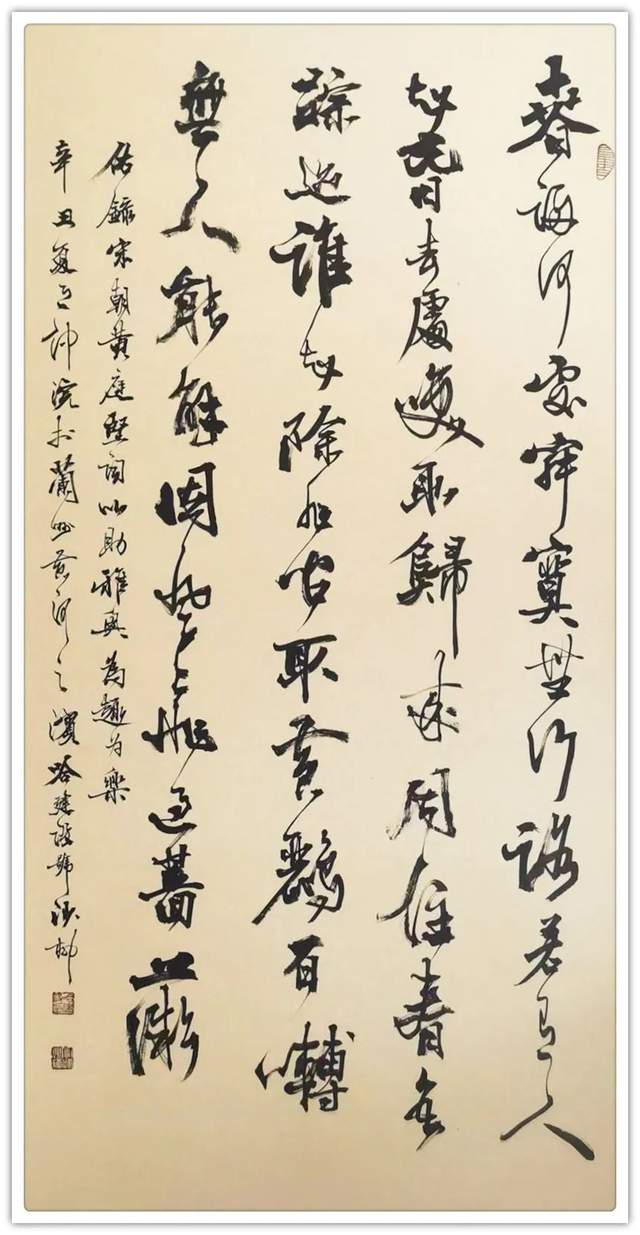 春歸何處寂寞無行路若有人
知春去處喚取歸來同住春無
踪迹誰知除非問取黄鸝百囀
無人能解因風飛過薔薇
錄宋朝黄庭堅詞以助雅興為趣为樂
辛丑夏之於蘭州黄河之濱哈建設號